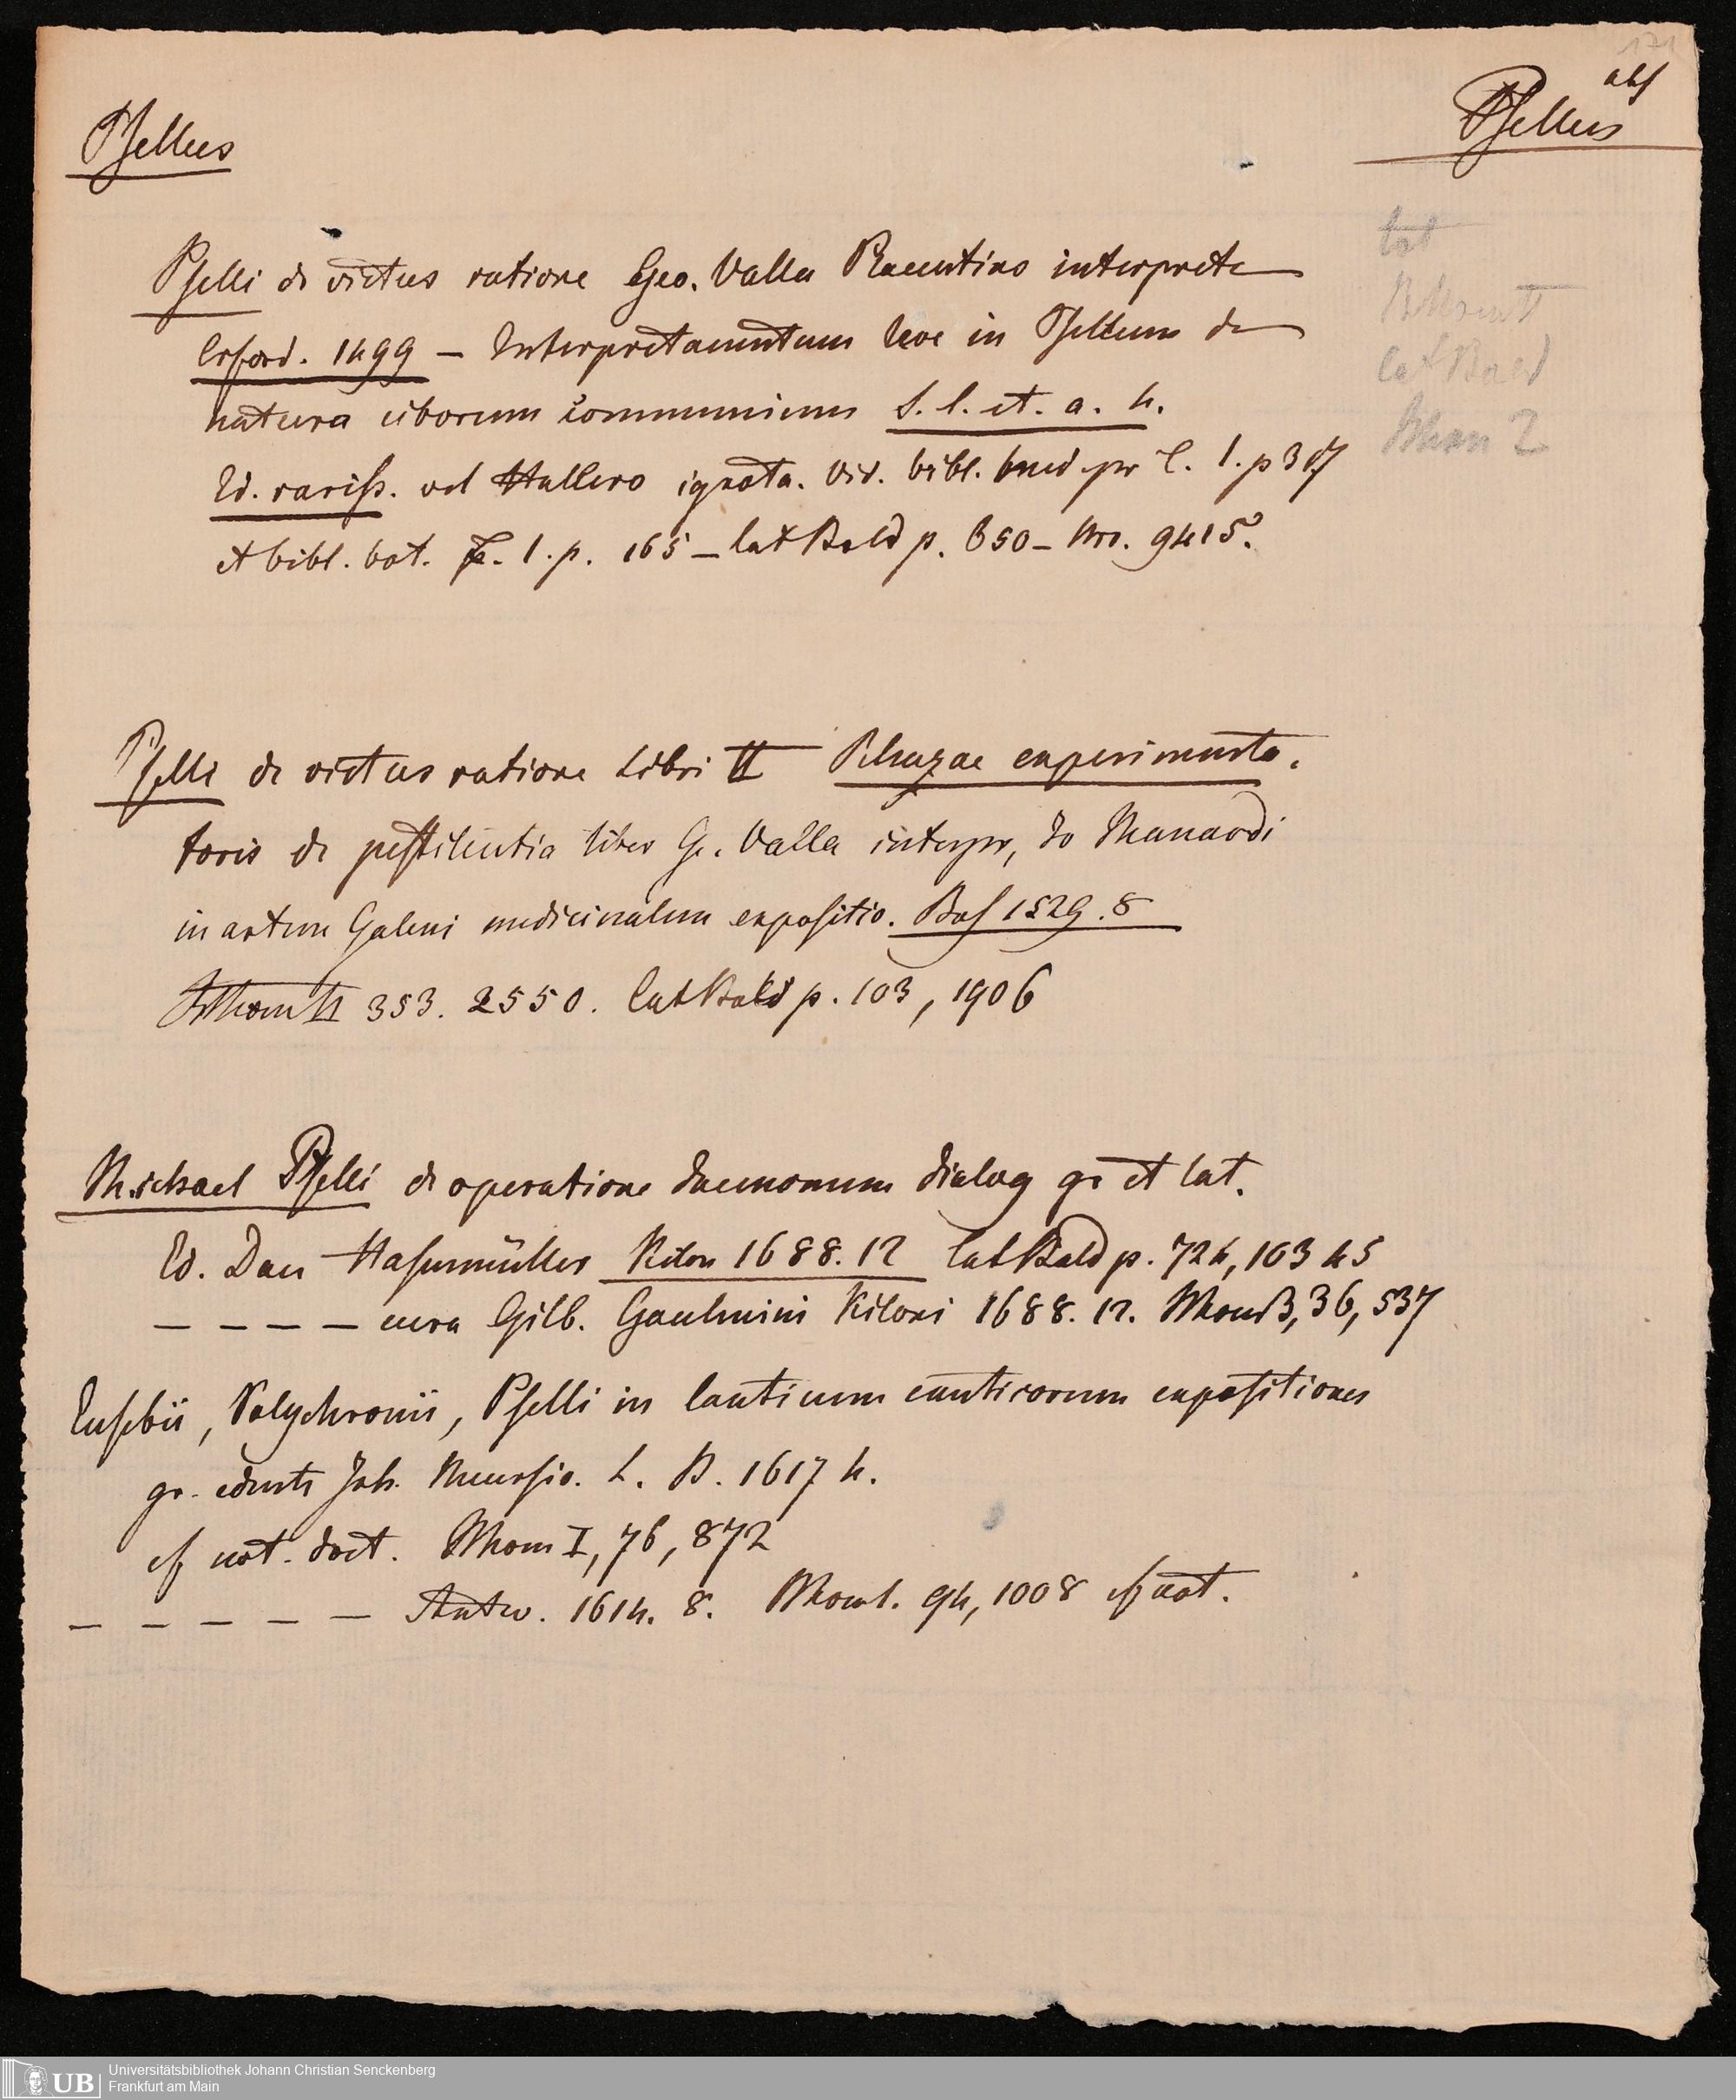 171
abs
Psellus
Psellus
Pselli de victus ratione Geo. Valla Placentino interprete
Erford. 1499 – Interpretamentum leve in Psellum de
natura ciborum communium S. l. et. a. 4.
Ed. rariss. vel Hallero ignota. Vid. bibl. med pr T. 1. p 317
et bibl. bot. T. 1. p. 165 – Cat Bald p. 650 – Nro. 9415.
Pselli de victus ratione Libri II Rhazae experimenta.
toris de pestilentia liber G. Valla interpr, Jo Manardi
in artem Galeni medicinalem expositio. Bas 1529. 8
353. 2550. Cat Bald p. 103, 1906
Michael Pselli de operatione daemonum dialog gr et lat.
Ed. Dan Hasenmüller Kilon 1688. 12 Cat Bald p. 724, 10345
– – – – cura Gilb. Gaulmini Kiloni 1688. 12. 36, 537
Eusebii, Polychronii, Pselli in Canticum canticorum expositiones
gr. edente Joh. Meursio. L. B. 1617 4.
cf not. doct. I, 76, 872
– – – – – Antw. 1614. 8. 94, 1008 cf not.
bot
Cat Bald
Universitätsbibliothek Johann Christian Senckenberg
Frankfurt am Main
UB